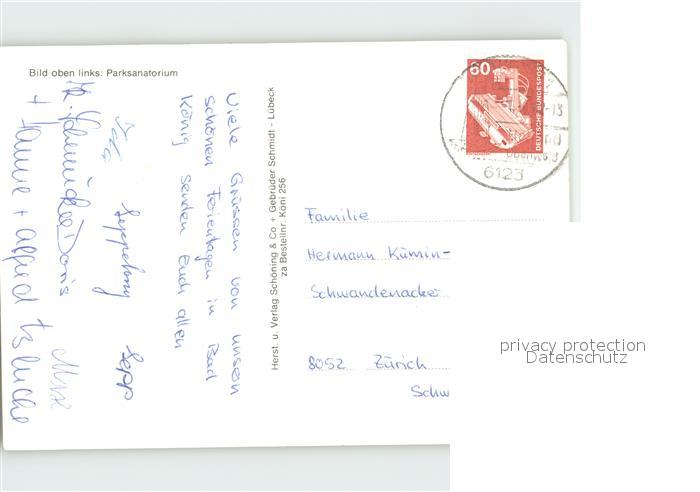 Bild oben links: Parksanatorium
Viele Grüssen von unsern
schönen Ferientagen in Bad
König senden Euch allen
Sepp
Doris
+ Hanne + Alfred
Herst. u. Verlag Schöning & Co + Gebrüder Schmidt - Lübeck
za Bestellnr. Köni 256
60
DEUTSCHE BUNDESPOST
-13
6123
Familie
Hermann Kümin-
Schwandenacke
8052 Zürich
Schw
privacy protection
Datenschutz